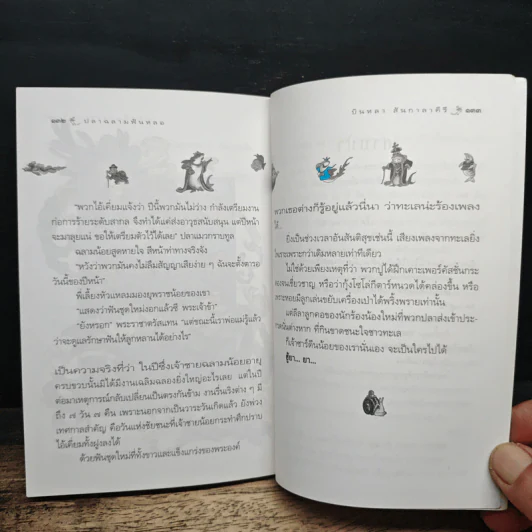 ๑๓๒ ปลาฉลามฟันหลอ
"พวกไอ้เคี่ยมแจ้งว่า ปีนี้พวกมันไม่ว่าง กำลังเตรียมงาน
ก่อการร้ายระดับสากล จึงทำได้แต่ส่งอาวุธสนับสนุน แต่ปีหน้า
จะมาลุยแน่ ขอให้เตรียมตัวไว้ได้เลย" ปลาแมวกราบทูล
ฉลามน้อยสูดหายใจ สีหน้าท่าทางจริงจัง
"หวังว่าพวกมันคงไม่ลืมสัญญาเสียง่าย ๆ ฉันจะตั้งตารอ
วันนี้ของปีหน้า"
พี่เลี้ยงหัวแหลมมองยุพราชน้อยของเขา
"แสดงว่าฟันชุดใหม่งอกแล้วซี พระเจ้าข้า"
"ยังหรอก" พระราชาตรัสแทน "แต่ขณะนี้เราพ่อแม่รู้แล้ว
ว่าจะดูแลรักษาฟันให้ลูกหลานได้อย่างไร"
เป็นความจริงที่ว่า ในปีซึ่งเจ้าชายฉลามน้อยอายุ
ครบขวบนั้นมิได้มีงานเฉลิมฉลองยิ่งใหญ่อะไรเลย แต่ในปี
ต่อมาเหตุการณ์กลับเปลี่ยนเป็นตรงกันข้าม งานรื่นเริงต่าง ๆ มี
ถึง ๗ วัน ๗ คืน เพราะนอกจากเป็นวาระวันเกิดแล้ว ยังพ่วง
เทศกาลสำคัญ คือวันแห่งชัยชนะที่เจ้าชายน้อยกระทำศึกปราบ
ไอ้เคี่ยมทั้งฝูงลงได้
ด้วยฟันชุดใหม่ที่ทั้งขาวและแข็งแกร่งของพระองค์
บินหลา สันกาลาคีรี ๑๓๓
พวกเธอต่างก็รู้อยู่แล้วนี่นา ว่าทะเลน่ะร้องเพลง
ได้...
ยิ่งเป็นช่วงเวลาอันสันติสุขเช่นนี้ เสียงเพลงจากทะเลยิ่ง
ไพเราะเพราะกว่าเดิมหลายเท่าทีเดียว
ไม่ใช่ด้วยเพียงเหตุที่ว่า พวกปูได้ฝึกเคาะเพอร์คัสชั่นกระ
ดองจนเชี่ยวชาญ หรือว่ากุ้งโซโล่กีตาร์หนวดได้คล่องขึ้น หรือ
เพราะหอยมีลูกเล่นขยับเครื่องเป่าได้พริ้งพรายเท่านั้น
แต่ลีลาลูกคอของนักร้องน้องใหม่ที่พวกปลาส่งเข้าประ-
กวดนั่นต่างหาก ที่กินขาดชนะใจชาวทะเล
ก็เจ้าชาร์ตีนน้อยของเรานั่นเอง จะเป็นใครไปได้
ชู้ยา... ยา...